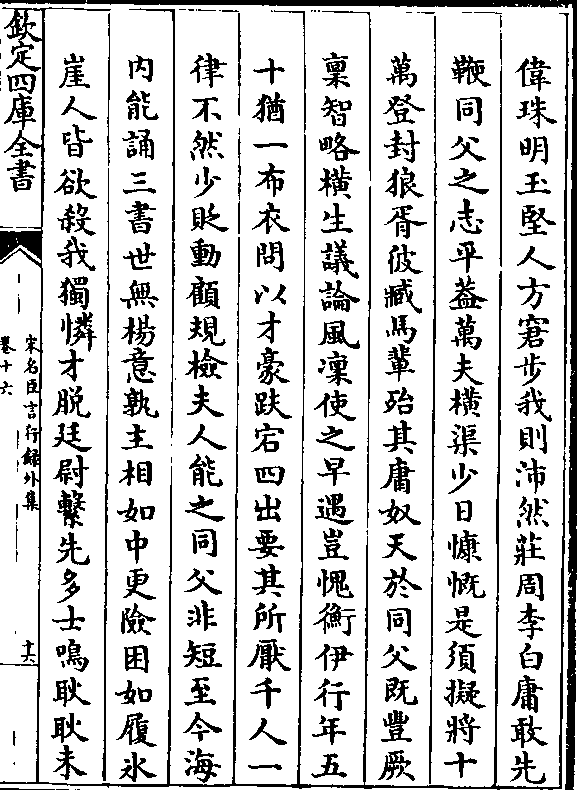 偉珠明玉堅人方窘步我則沛然莊周李白庸敢先
鞭同父之志平葢萬夫横渠少日慷慨是須擬將十
萬登封狼胥彼臧馬輩殆其庸奴天於同父既豐厥
稟智略横生議論風凜使之早遇豈愧衡伊行年五
十猶一布衣間以才豪跌宕四出要其所厭千人一
律不然少貶動顧規檢夫人能之同父非短至今海
内能誦三書世無楊意孰主相如中更險困如履氷
崖人皆欲殺我獨憐才脱廷尉繫先多士鳴耿耿未
欽定四庫全書
宋名臣言行録外集
卷十六
十六